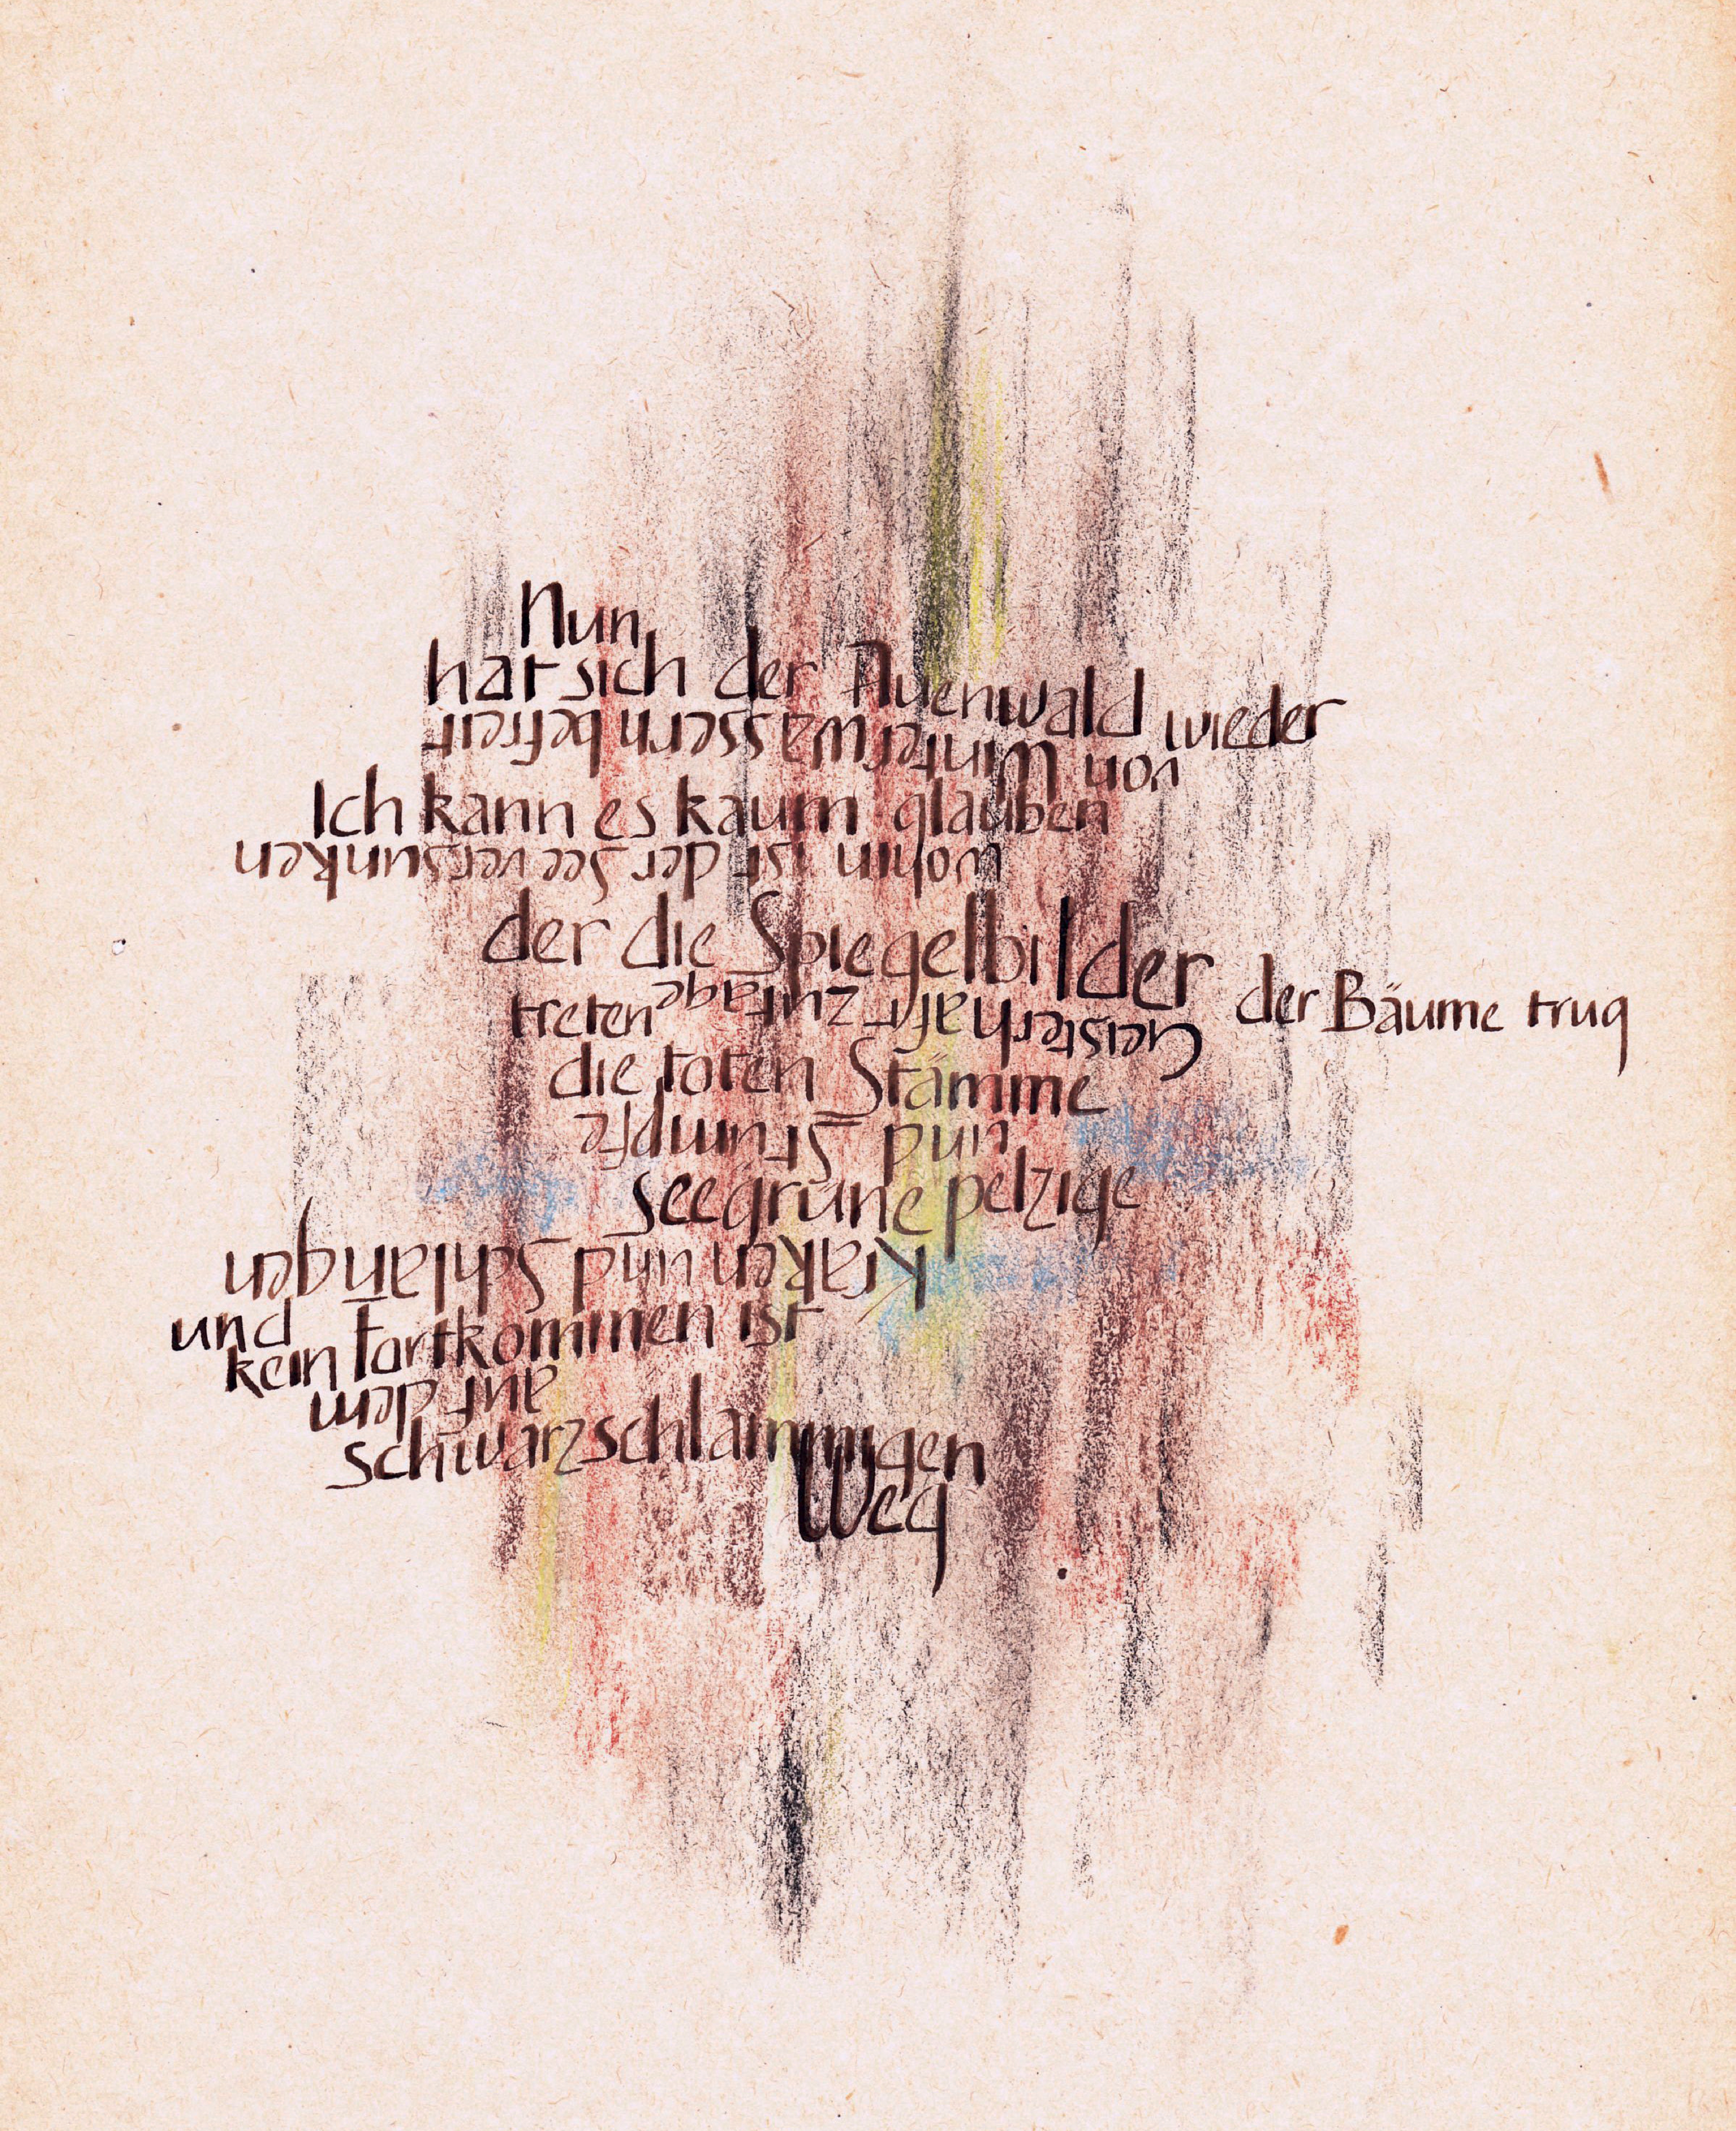 Nun
hat sich der Auenwald wieder
von Winterwassern befreit
Ich kann es kaum glauben
wohin ist der See versunken
der die Spiegelbilder der Bäume trug
Geisterhaft zutage treten
die toten Stämme
und Strümpfe
seegrüne pelzige
Kraken und Schlangen
und
kein Fortkommen ist
auf dem
schwarzschlammigen
Weg